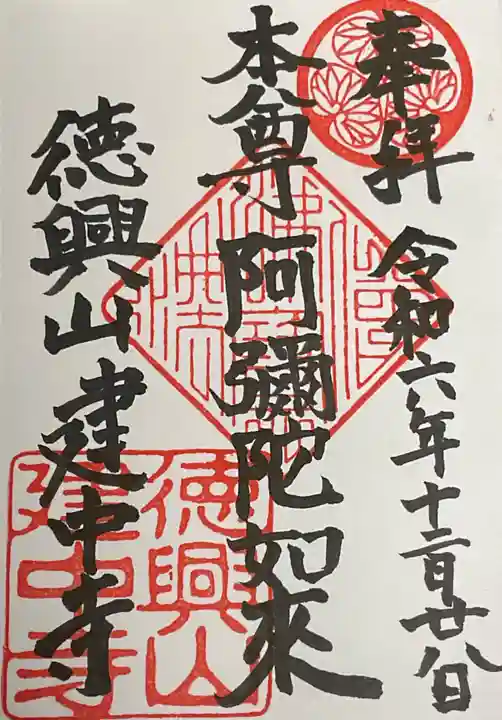 奉拝 令和六年十二月廿八日
本尊 阿彌陀如来
徳興山 建中寺
徳興山
建中寺